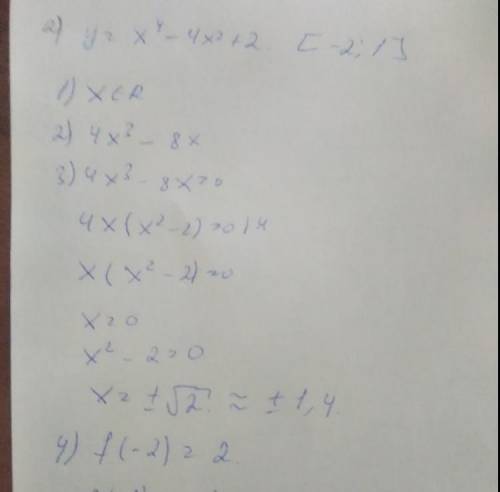 a) y = x⁴ - 4x² + 2. [-2; 1]
1) x ∈ R
2) 4x³ - 8x
3) 4x³ - 8x = 0
4x(x² - 2) = 0 | : 4
x(x² - 2) = 0
x = 0
x² - 2 = 0
x = ±√2 ≈ ±1,4.
4) f(-2) = 2.